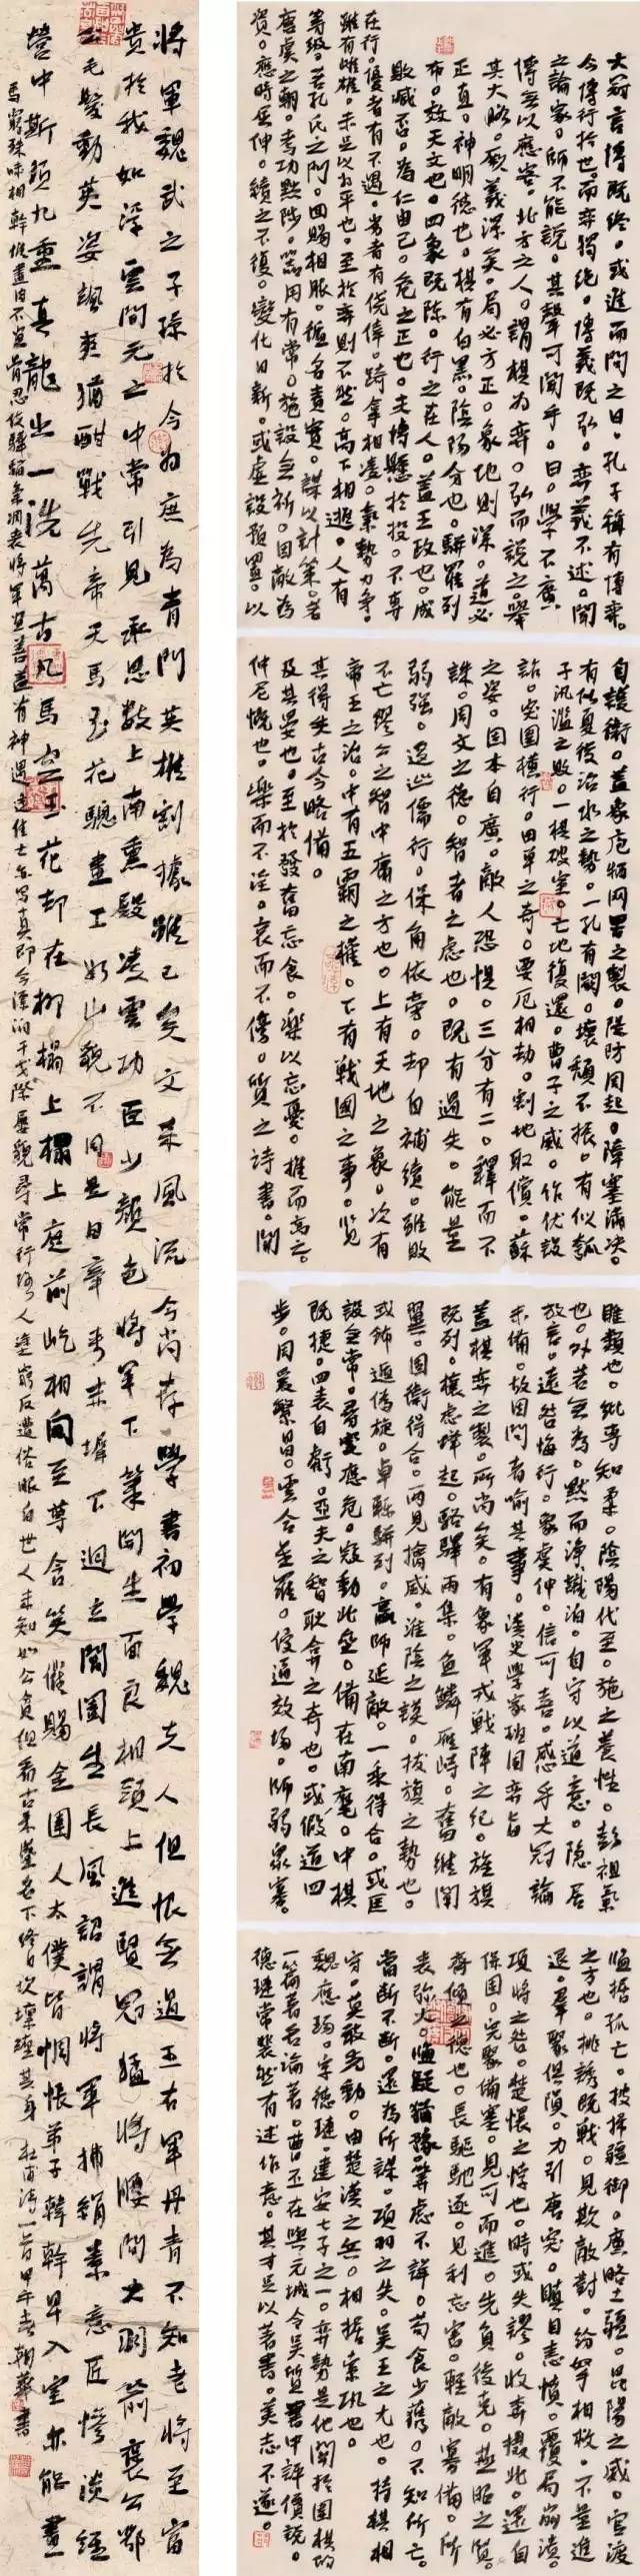 將軍魏武之子孫於今為庶為青門英雄割據雖已矣文采風流今尚存學書初學魏夫人但恨無過王右軍丹青不知老將至富
貴於我如浮雲開元之中常引見承恩數上南熏殿凌雲功臣少顏色將軍下筆開生面良相頭上進賢冠猛將腰間大羽箭褒公鄂
公毛髮動英姿颯爽猶酣戰先帝天馬玉花驄畫工如山貌不同是日牽來赤墀下迥立閶闔生長風詔謂將軍拂絹素意匠慘淡經
營中斯須九重真龍出一洗萬古凡馬空玉花却在御榻上榻上庭前屹相向至尊含笑催賜金圉人太僕皆惆悵弟子韓幹早入室亦能畫
馬窮殊相幹惟畫肉不畫骨忍使驊騮氣凋喪將軍畫善蓋有神遇逢佳士亦寫真即今漂泊干戈際屢貌尋常行路人途窮反遭俗眼白世人未知如公貧但看古來盛名下終日坎壈纏其身 杜甫詩一首甲午春朝華書
大冠言博既終。或進而問之曰。孔子稱有博弈。
今博行於世。而弈獨絕。博義既弘。弈義不述。問
之論家。師不能說。其聲可聞乎。曰。學不廣
博。無以應客。北方之人。謂棋為弈。弘而說之。舉
其大略。厥義深矣。局必方正。象地則深。道必
正直。神明德也。棋有白黑。陰陽分也。駢羅列
布。效天文也。四象既陳。行之在人。蓋王政也。成
敗臧否。為仁由己。危之正也。夫博懸於投。不專
在行。優者有不遇。劣者有僥倖。踦拿相凌。氣勢力爭。
雖有雌雄。未足以為平也。至於弈則不然。高下相逃。人有
等級。若孔氏之門。回賜相服。循名責實。謀以計策。若
唐虞之朝。考功黜陟。器用有常。施設無祈。因敵為
資。應時屈伸。續之不復。變化日新。或虛設預置。以
自護衛。蓋象庖犧網罟之製。隄防周起。障塞漏決。
有似夏後治水之勢。一孔有闕。壞頹不振。有似瓠
子汎濫之敗。一棋破窒。亡地復還。曹子之威。作伏設
詐。突圍橫行。田單之奇。要厄相劫。割地取償。蘇
之姿。固本自廣。敵人恐懼。三分有二。釋而不
誅。周文之德。智者之慮也。既有過失。能量
弱強。逡巡儒行。保角依旁。却自補續。雖敗
不亡。繆公之智。中庸之方也。上有天地之象。次有
帝王之治。中有五霸之權。下有戰國之事。覽
其得失。古今略備。
及其晏也。至於發奮忘食。樂以忘憂。推而高之。
仲尼慨也。樂而不淫。哀而不傷。質之詩書。關
雎類也。紕專知柔。陰陽代至。施之養性。彭祖氣
也。外若無為。默而淨識泊。自守以道意。隱居
放言。遠咎悔行。象虞仲。信可喜。感乎大冠論
未備。故因問者喻其事。漢史學家班固弈旨
蓋棋弈之製。所尚矣。有象軍戎戰陣之紀。旌旗
既列。權慮蜂起。駱驛雨集。魚鱗雁峙。奮維闡
翼。固衛得合。兩見擒威。淮陰之謨。拔旗之勢也。
或飾遁偽旋。卓轢駢列。贏師延敵。一乘得合。或匡
設無常。尋變應危。疑動此壘。備在南麾。中棋
既捷。四表自虧。亞夫之智。耿弇之奇也。或假道四
步。周爰繁昌。雲合星羅。侵逼效場。師弱眾寡。
臨據孤亡。披掃疆御。廣略土疆。昆陽之威。官渡
之方也。挑誘既戰。見欺敵對。紛拏相救。不量進
退。羣聚俱隕。力引唐突。瞋目恚憤。覆局崩潰。
項將之咎。楚懷之悖也。時或失謬。收奔攝北。還自
保固。完聚備塞。見可而進。先負後克。燕昭之賢。
齊傾之德也。長驅馳逐。見利忘害。輕敵寡備。所
喪弥大。臨疑猶豫。算慮不詳。苟貪少獲。不知所亡。
當斷不斷。還為所謀。項羽之失。吳王之尤也。持棋相
守。莫敢先動。由楚漢之兵。相據索鞏也。
魏應瑒。字德璉。建安七子之一。弈勢是他關於圍棋的
一篇著名論著。曹丕在與元城令吳質書中評價說。
德璉常斐然有述作意。其才足以著書。美志不遂。